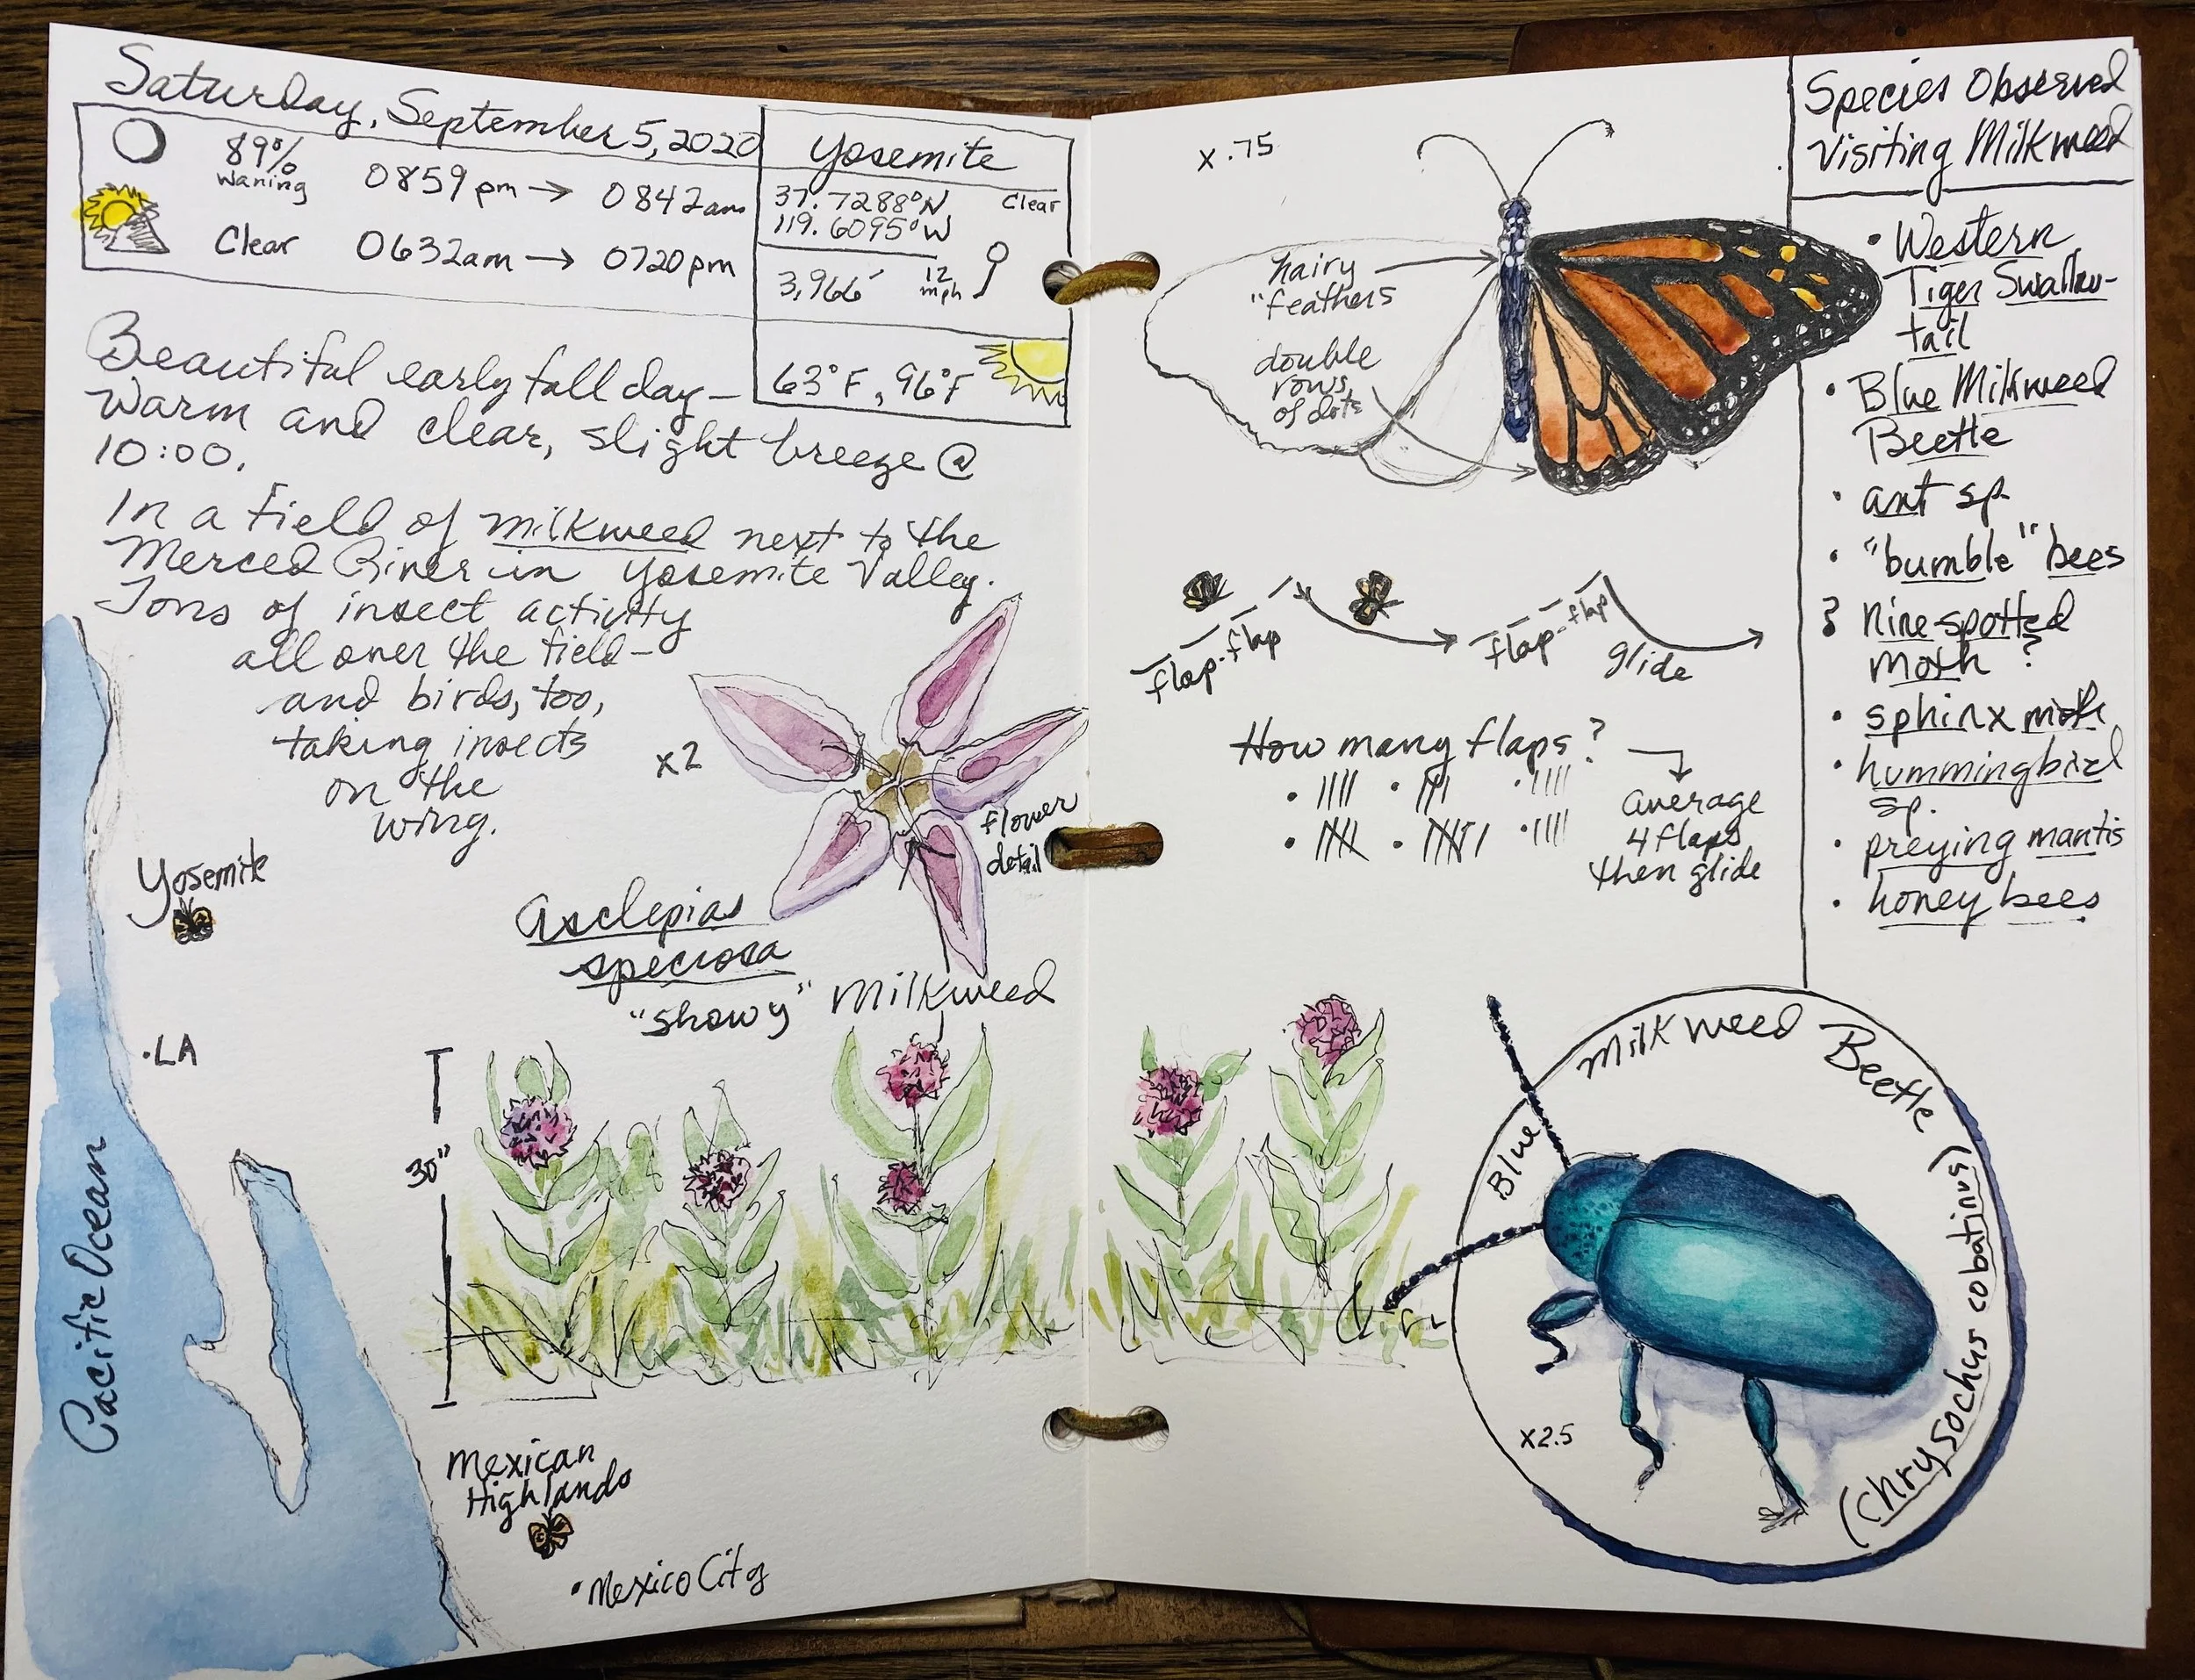 Saturday, September 5, 2020
89%
Waning
0859pm → 0842am
Clear
0632am → 0720pm
Yosemite
37.7288°N
119.6095°W
Clear
3,966′
12
mph
63°F, 96°F
Beautiful early fall day –
Warm and clear, slight breeze @
10:00.
In a field of milkweed next to the
Merced River in Yosemite Valley.
Tons of insect activity
all over the field –
and birds, too,
taking insects
on the
wing.
x2
flower
detail
Asclepias
speciosa
"showy" Milkweed
Yosemite
.LA
Pacific Ocean
30"
Mexican
Highlands
• Mexico City
x .75
hairy
"feathers
double
rows
of dots
flap-flap
flap-flap
glide
How many flaps?
average
4 flaps
then glide
Species Observed
Visiting Milkweed
• Western
Tiger Swallow-
tail
• Blue Milkweed
Beetle
• ant sp.
• "bumble" bees
? Nine-spotted
Moth ?
• sphinx moth
• hummingbird
sp.
• preying mantis
• honey bees
Blue Milkweed Beetle
(Chrysochus cobatinus)
x2.5